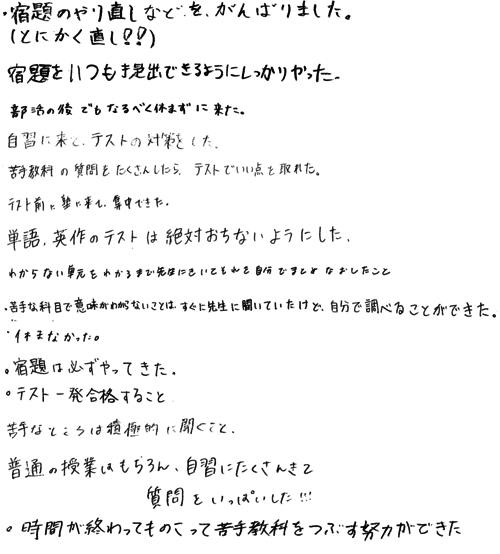 ・宿題のやり直しなどを、がんばりました。
(とにかく直し!?!?)
宿題をいつも提出できるようにしっかりやった。
部活の後でもなるべく休まずに来た。
自習に来て、テストの対策をした。
苦手教科の質問をたくさんしたら、テストでいい点を取れた。
テスト前に塾に来て、集中できた。
単語、英作のテストは絶対おちないようにした、
わからない単元をわかるまで先生にきいてそれを自分でまとめなおしたこと
・苦手な科目で意味がわからないことは、すぐに先生に聞いていたけど、自分で調べることができた。
・休まなかった。
。宿題は必ずやってきた。
。テスト一発合格すること
苦手なところは積極的に聞くこと、
普通の授業はもちろん、自習にたくさんきて
質問をいっぱいした!!!
。時間が終わってものこって苦手教科をつぶす努力ができた